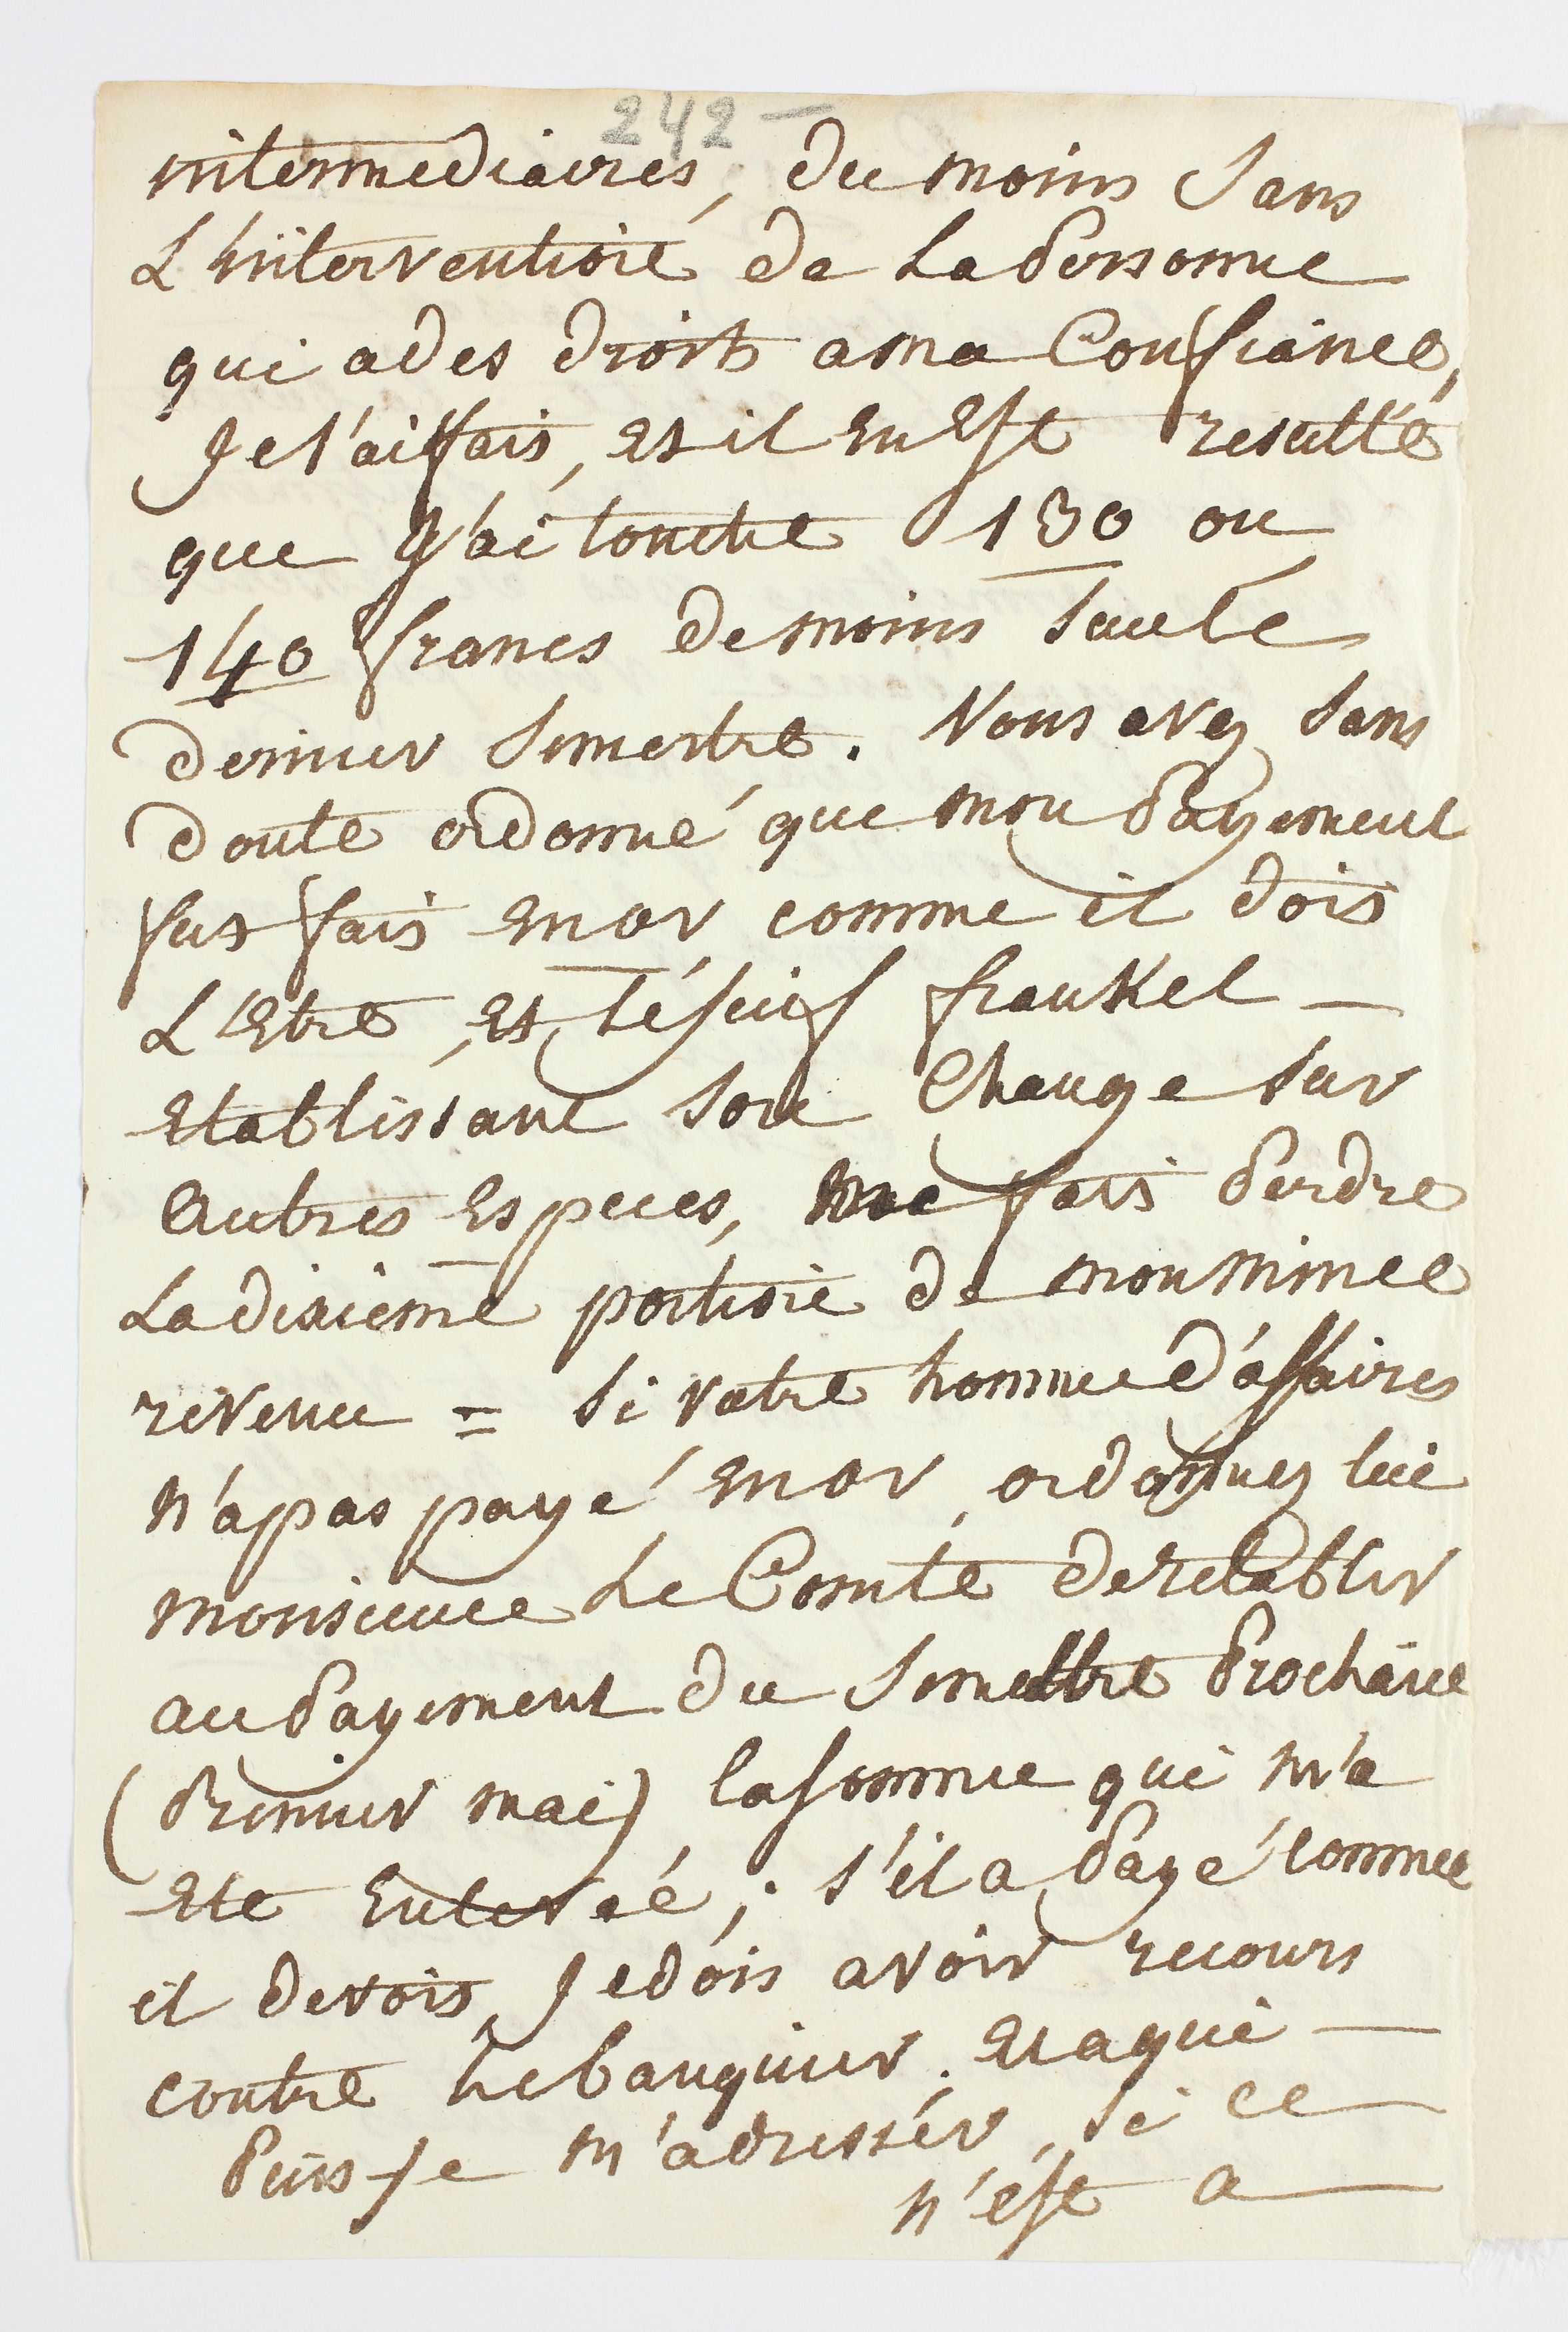 242 —
intermediaires, du moins sans
L'intervention de La Personne
qui a des droits a ma Confiance,
Je l'ai fais, et il en Est resulté
que J'ai touché 130 ou
140 francs de moins sur le
dernier Semestre. Vous avez sans
doute ordonné que mon Payement
fut fais en or comme il dois
L'Etre, et le juif frankel —
Etablissant son Change sur
autres Especes, me fais Perdre
La dixieme portion de mon mince
revenu = si votre homme d'affaires
n'a pas payé en or, ordonnez lui
monsieur Le Comte de retablir
au Payement du Semestre Prochain
(Premier mai) la somme qui m'a
Eté Enlevéé; s'il a Payé comme
il devois, Je dois avoir recours
contre le banquier. Et a qui —
Puis-je m'adresser, si ce
n'est a